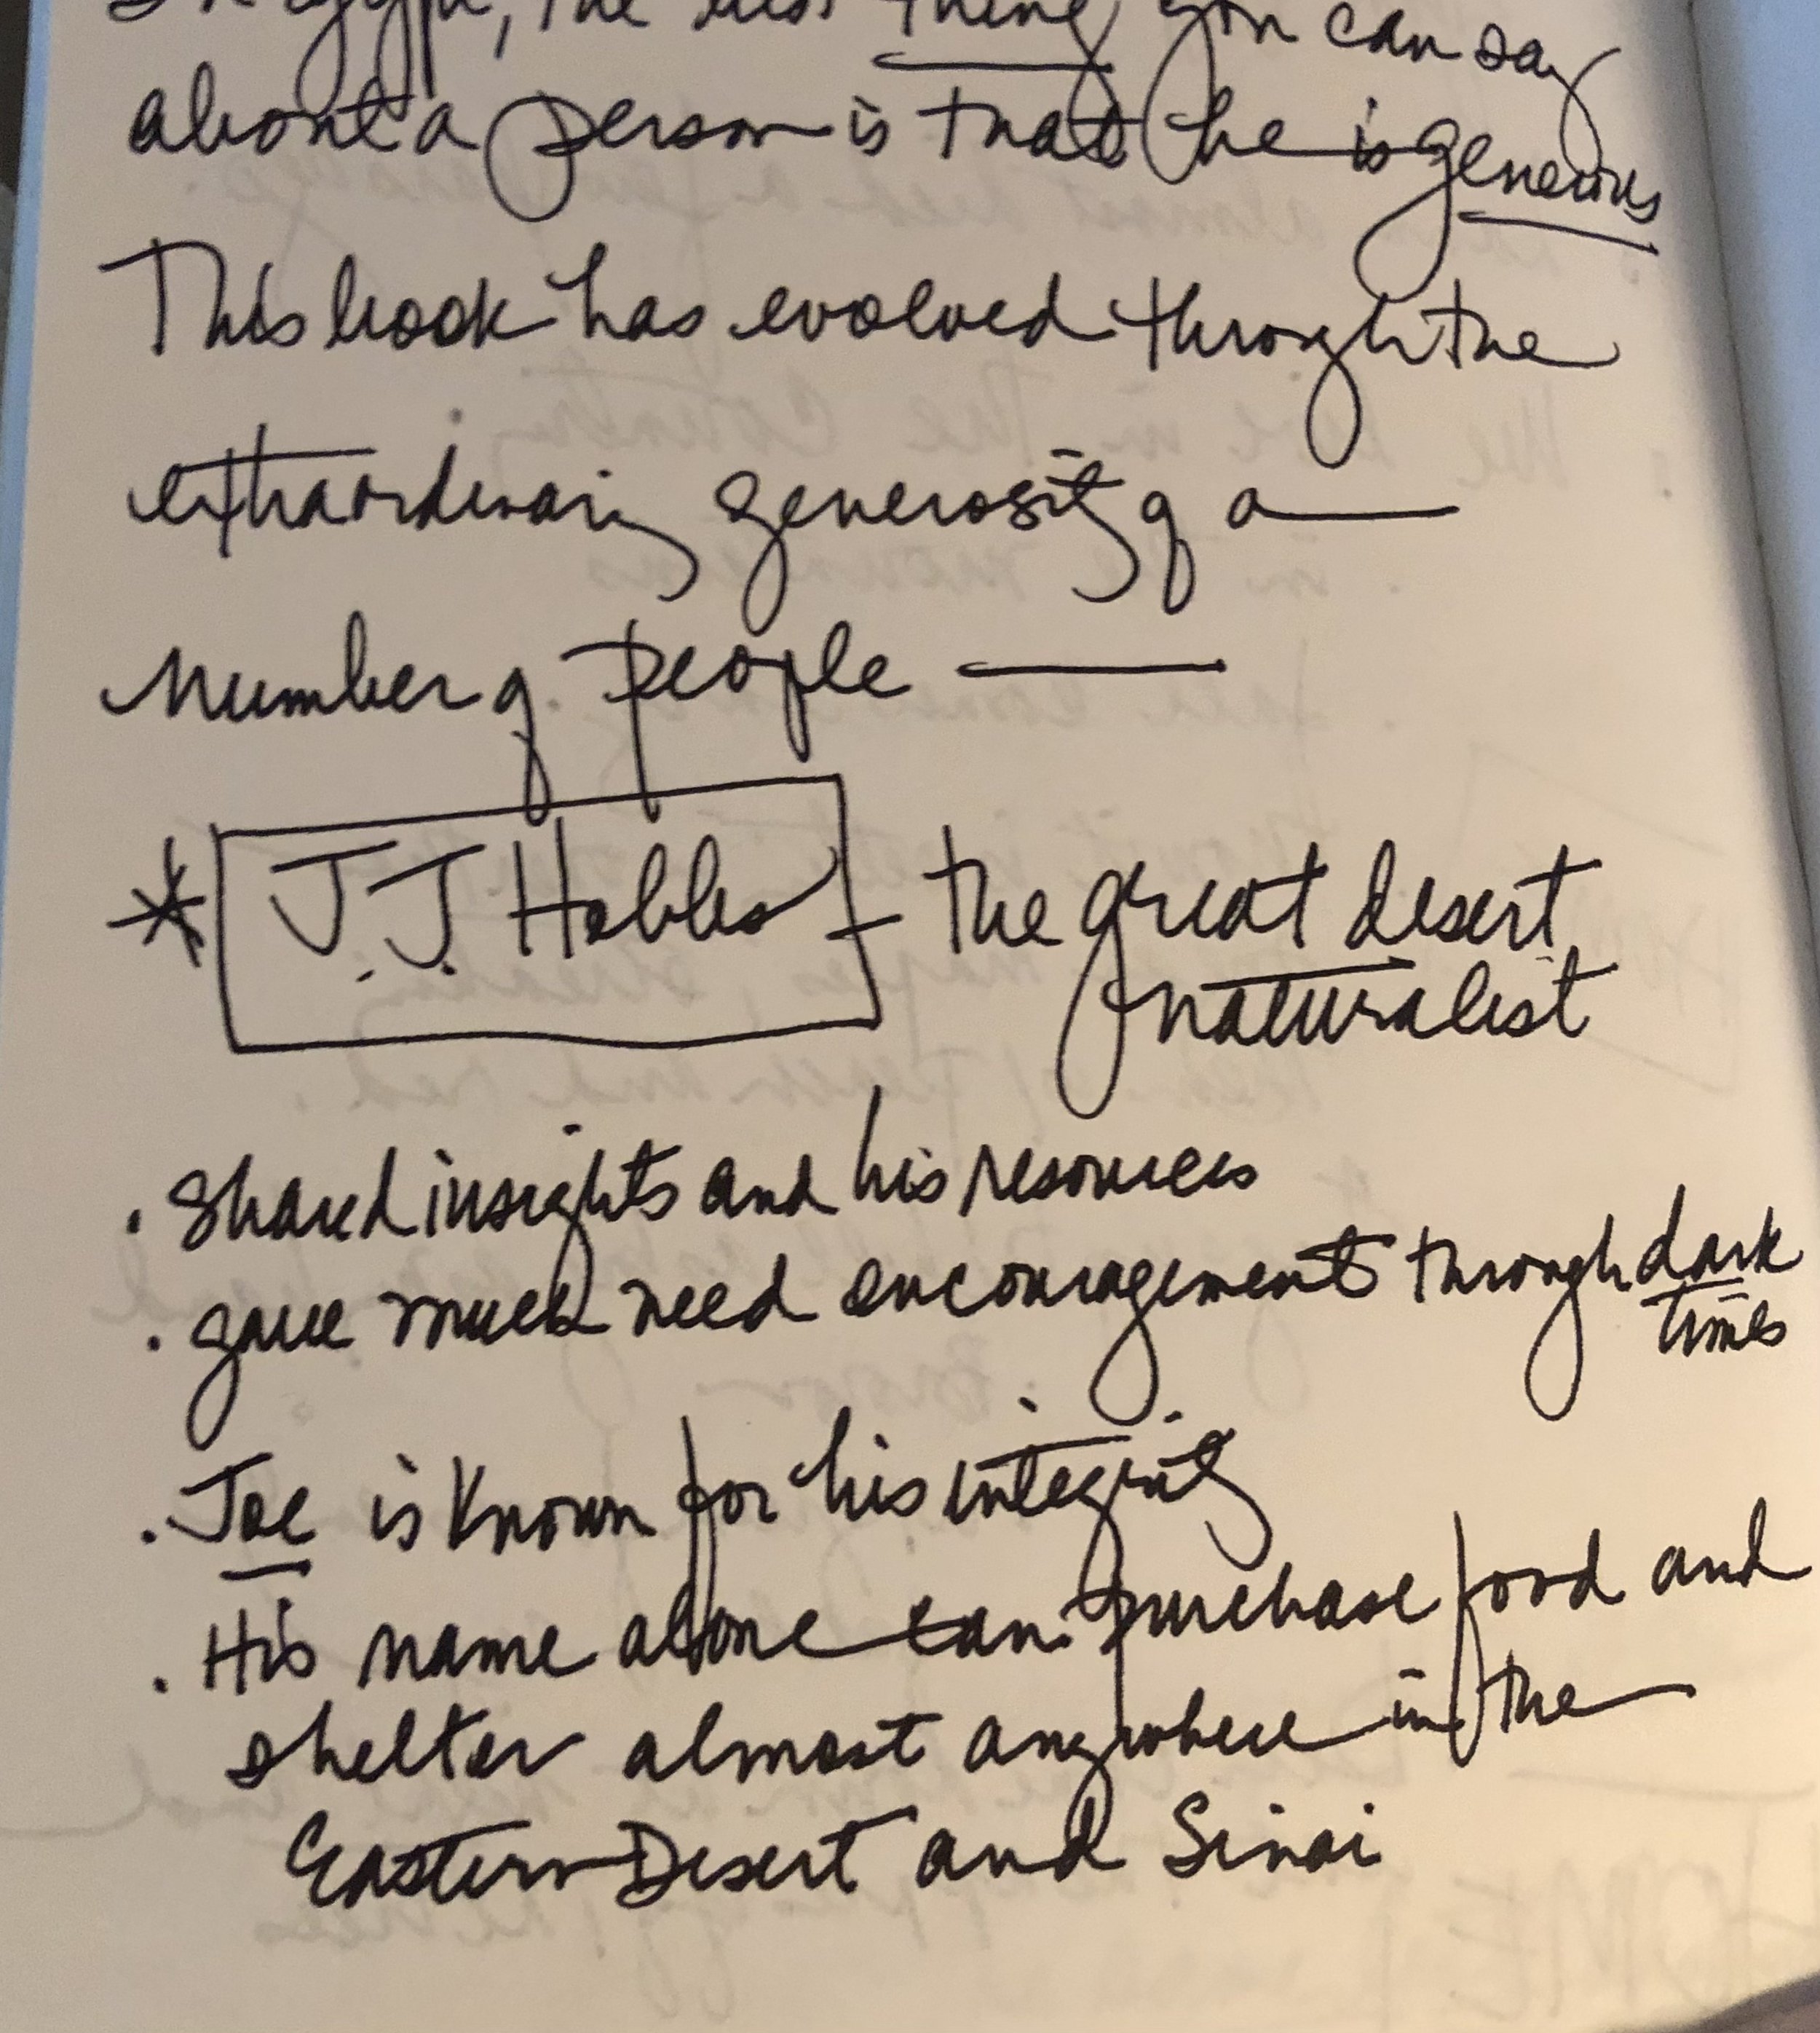 In Egypt, the best thing you can say
about a person is that he is generous
This book has evolved through the
extraordinary generosity of a
number of people
* J.J. Hobbs - the great desert
naturalist
. Shared insights and his resources
. gave much need encouragement through dark
times
. Joe is known for his integrity
. His name alone can purchase food and
shelter almost anywhere in the
Eastern Desert and Sinai